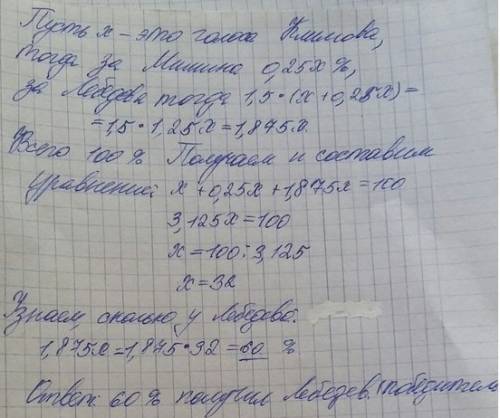 Пусть x - это голоса Климова,
тогда за Мишина 0,25x %,
за Лебедева тогда 1,5•(x+0,25x)=
=1,5•1,25x=1,875x.
Всего 100% Получаем и составим
уравнение: x+0,25x+1,875x=100
3,125x=100
x=100:3,125
x=32
Узнаем, сколько у Лебедева:
1,875x=1,875•32=60 %
Ответ: 60% получил Лебедев. (победитель